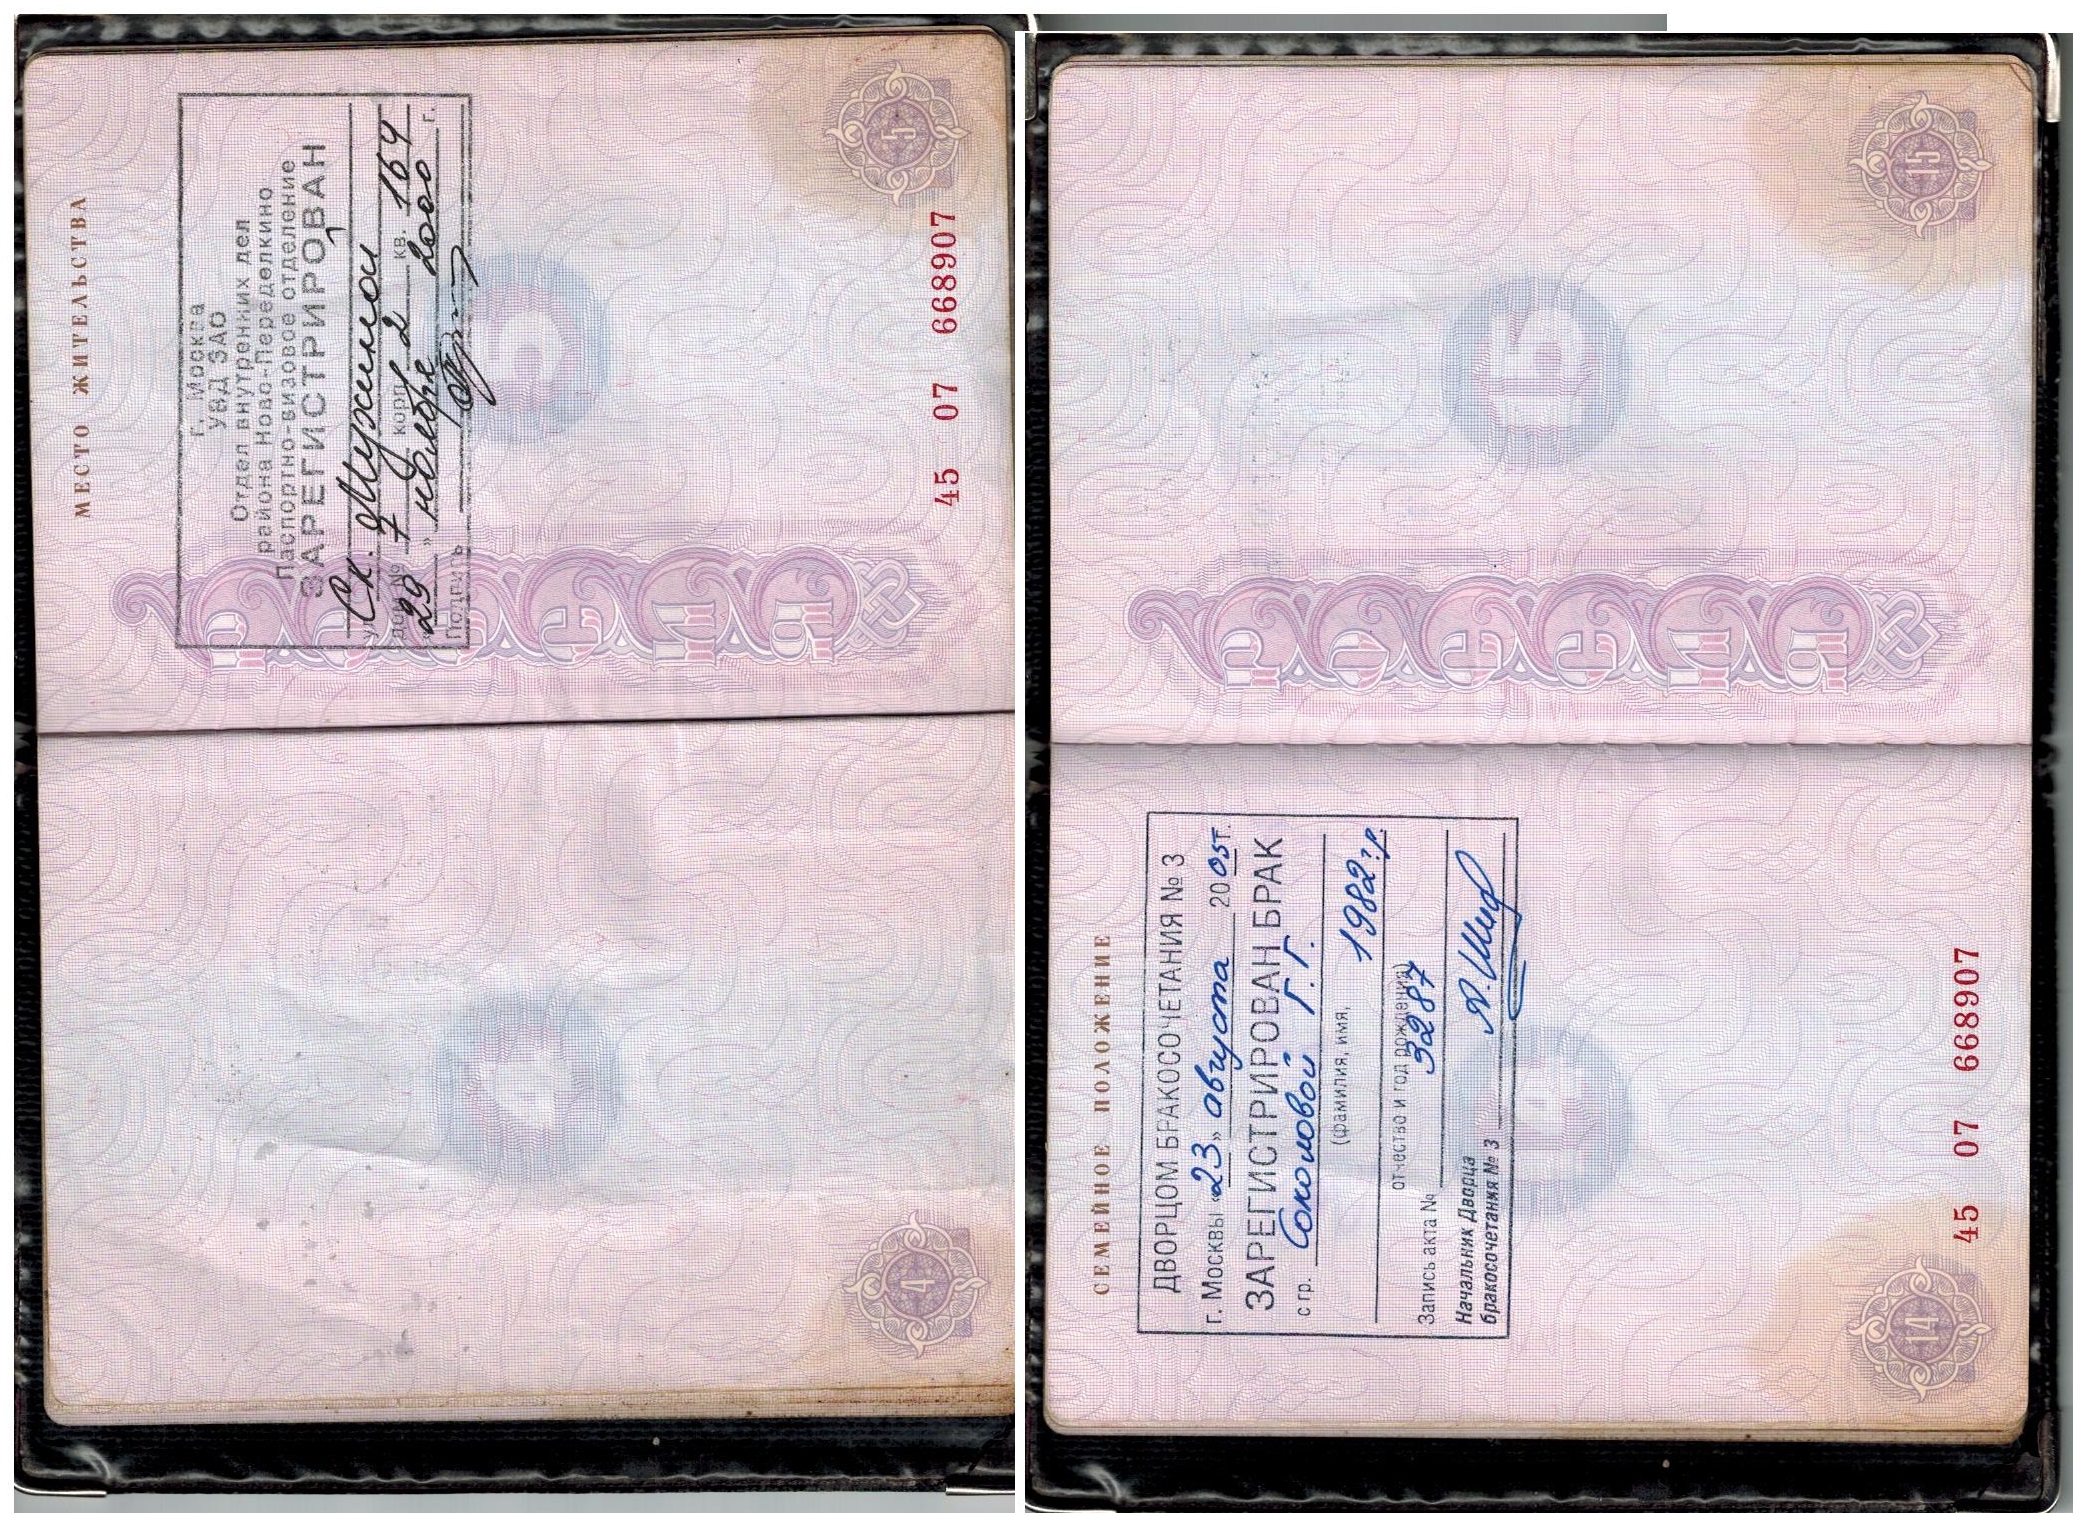 МЕСТО ЖИТЕЛЬСТВА
г. Москва
УВД ЗАО
Отдел внутренних дел
района Ново-Переделкино
Паспортно-визовое отделение
ЗАРЕГИСТРИРОВАН
ул. Ск.
дом № 7 корп. 2 кв. 164
"29" ноября 2000 г.
Подпись
РОССИЯ
5
45 07 668907
4
15
РОССИЯ
СЕМЕЙНОЕ ПОЛОЖЕНИЕ
ДВОРЦОМ БРАКОСОЧЕТАНИЯ № 3
г. Москвы «23» августа 2005г.
ЗАРЕГИСТРИРОВАН БРАК
с гр. Соколовой Г.Г.
(фамилия, имя,
1982 г.р.
отчество и год рождения)
Запись акта № 3287
Начальник Дворца
бракосочетания № 3
14
45 07 668907